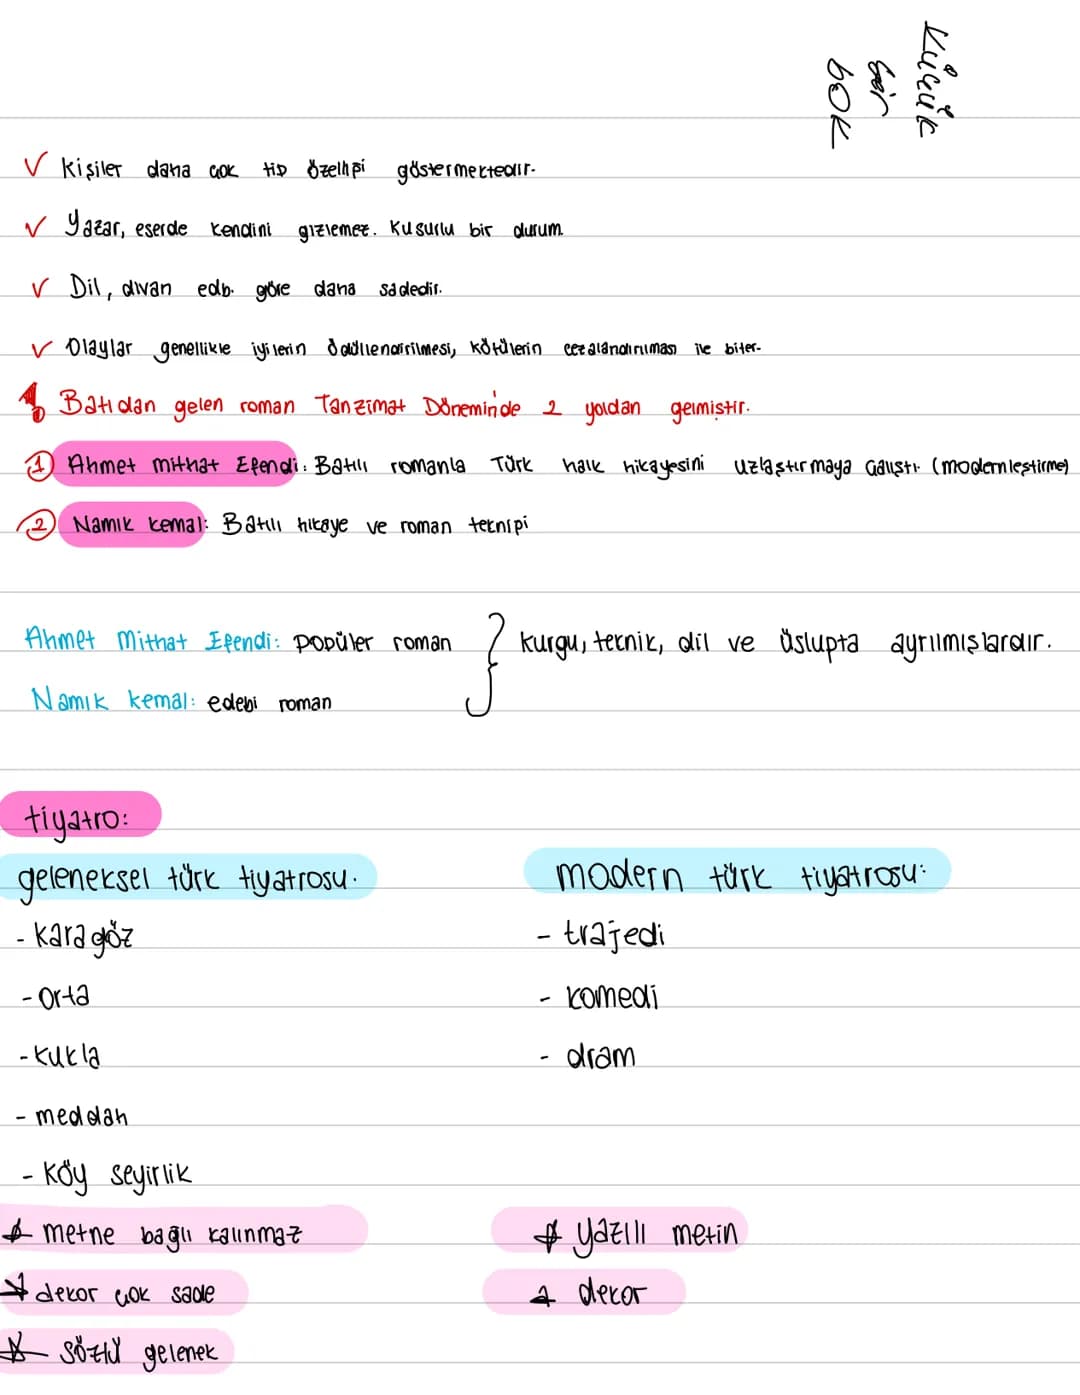 Küçük
bir
bok
✓ Kişiler daha çok tip özelliği göstermektedir.
✓ Yazar, eserde kendini gizlemez. Kusurlu bir durum.
✓ Dil, divan edb. göre daha sadedir.
✓ Olaylar genellikle iyilerin ödüllendirilmesi, kötülerin cezalandırılması ile biter.
Batıdan gelen roman Tanzimat Döneminde 2 yoldan gelmiştir.
① Ahmet mithat Efendi: Batılı romanla Türk halk hikayesini uzlaştırmaya çalıştı. (modernleştirme)
② Namık kemal: Batılı hikaye ve roman tekniği
Ahmet Mithat Efendi: popüler roman } kurgu, teknik, dil ve üslupta ayrılmışlardır.
Namık kemal: edebi roman
tiyatro:
geleneksel türk tiyatrosu. modern türk tiyatrosu:
- karagöz - trajedi
- orta - komedi
- kukla - dram
- meddah
- köy seyirlik
metne bağlı kalınmaz yazılı metin
dekor çok sade dekor
sözlü gelenek